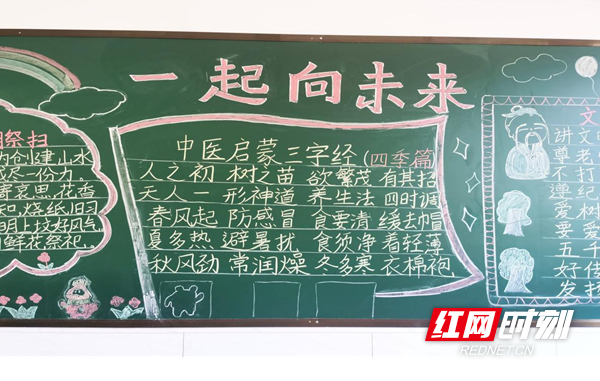 一起向未来
祭扫
为创建山水
尽一份力。
寄哀思,花香
和,烧纸旧习
明上坟好风气
用鲜花祭祀。
中医启蒙三字经(四季篇
人之初 树之苗 欲繁茂 有其招
天人一 形神道 养生法 四时调
春风起 防感冒 食要清 缓去帽
夏多热 避暑扰 食须净 着轻薄
秋风劲 常润燥 冬多寒 衣棉袍
文
讲文
尊老
不打
遵纪
爱树
要爱
五千
好
发扬
红网时刻
REDNET.CN